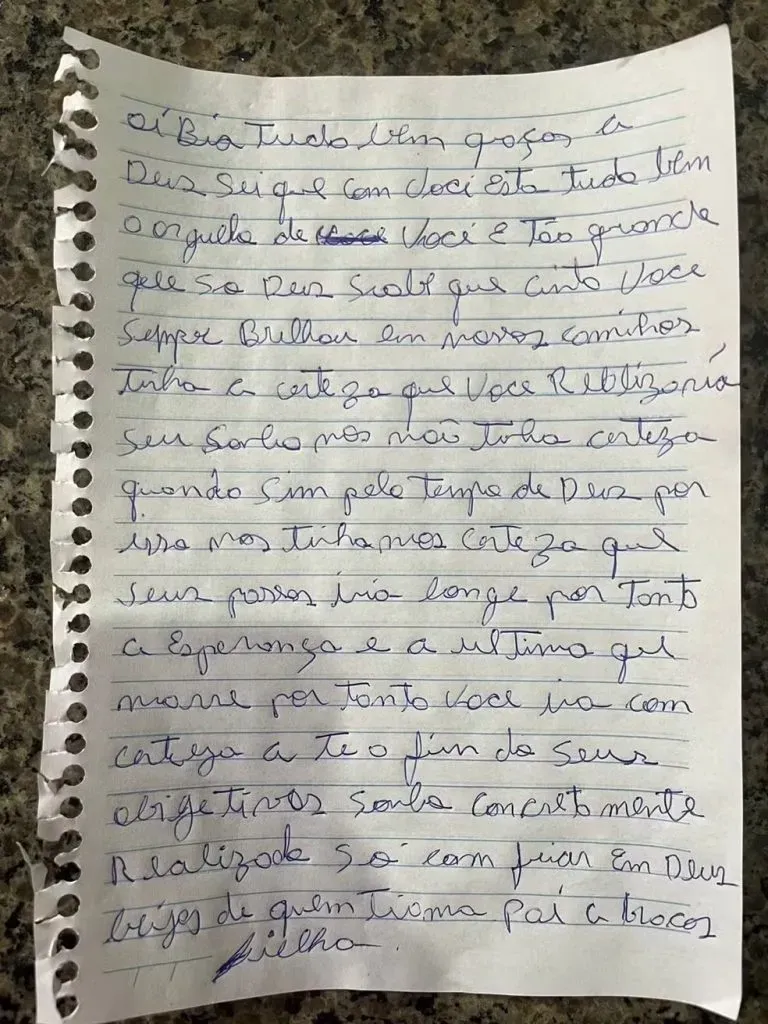 oi Bia Tudo bem graças a
Deus sei que com você Esta tudo bem
o orgulho de você É Tão grande
que só Deus Sabe que cinto Voce
sempre Brilhou em nossos caminhos
tinha a certeza que Voce Realizaria
seu sonho nós não tinha certeza
quando sim pelo tempo de Deus por
isso nos tinhamos certeza que
seus passos iria longe por Tanto
a Esperança e a ultima que
morre por tanto Voce ira com
certeza a te o fim do seus
obigetivos sonho concretomente
Realizado só com fiar Em Deus
beijos de quem Tiama Pai a bracos
filha.